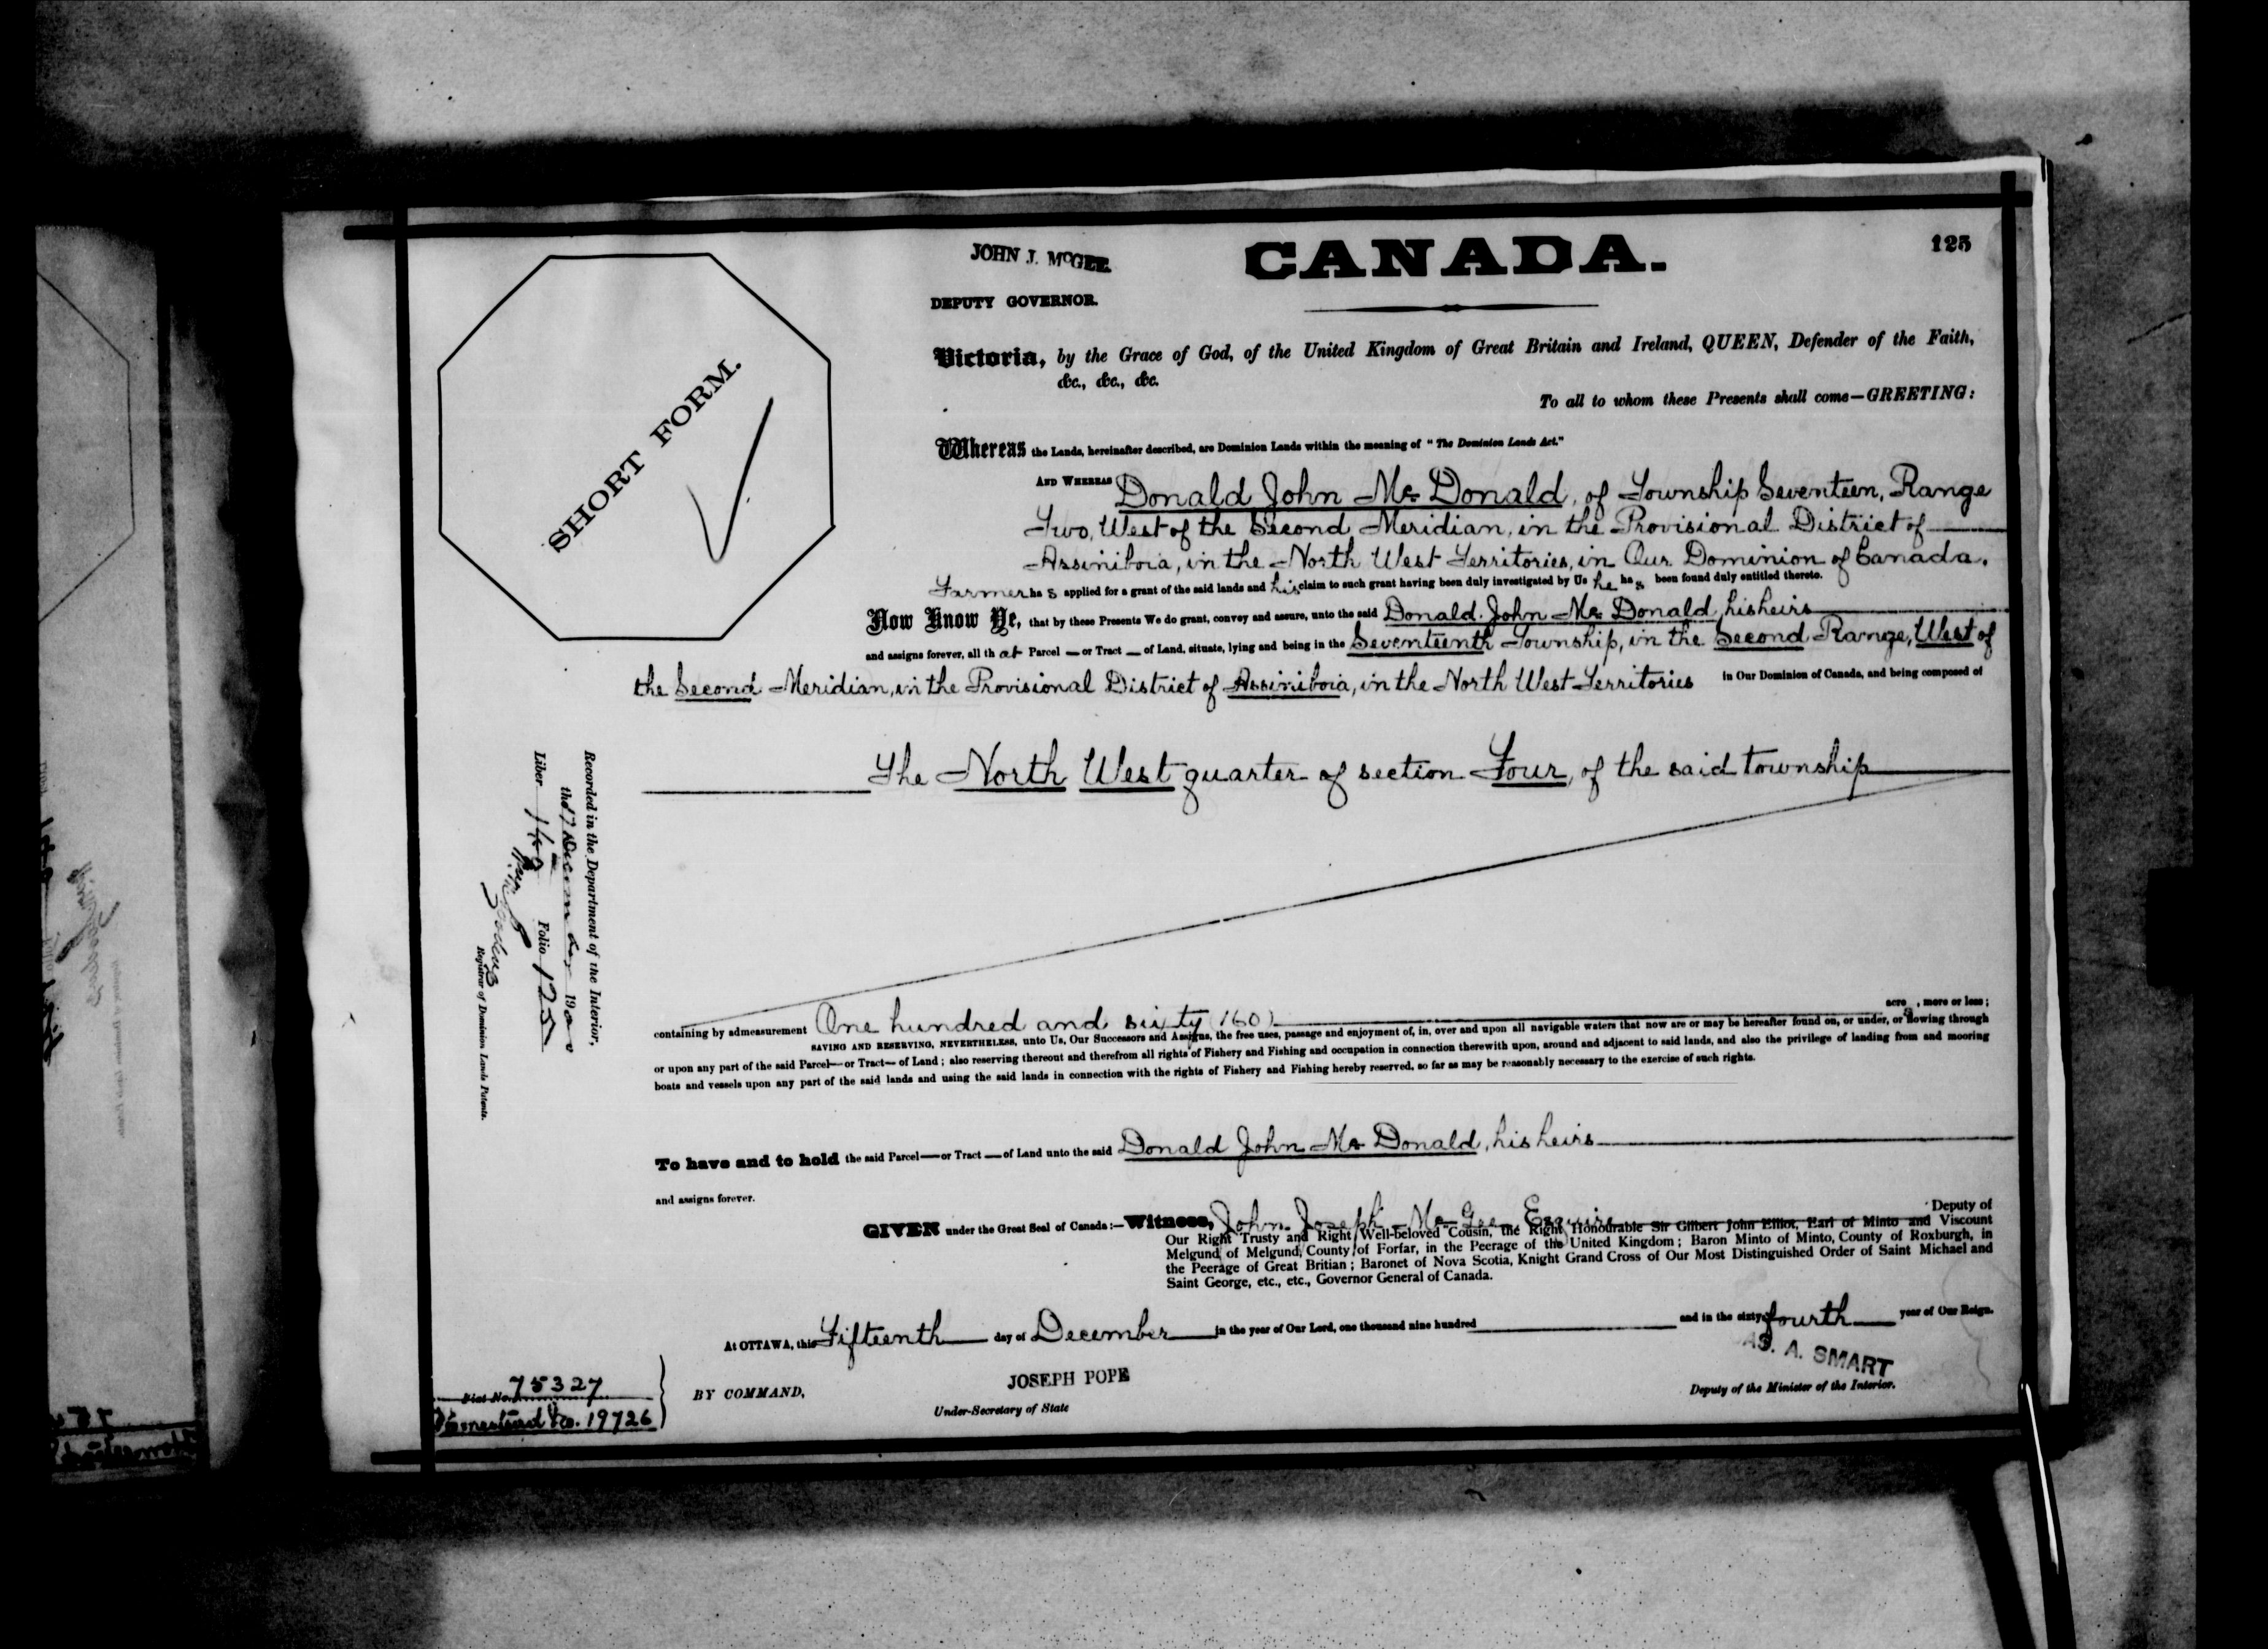 125
JOHN J. McGEE.
CANADA.
DEPUTY GOVERNOR.
SHORT FORM.
Victoria, by the Grace of God, of the United Kingdom of Great Britain and Ireland, QUEEN, Defender of the Faith,
&c., &c., &c.
To all to whom these Presents shall come—GREETING:
Whereas the Lands, hereinafter described, are Dominion Lands within the meaning of "The Dominion Lands Act."
AND WHEREAS Donald John Mc Donald, of Township Seventeen, Range
Two, West of the Second Meridian, in the Provisional District of
Assiniboia, in the North West Territories, in Our Dominion of Canada,
Farmer ha s applied for a grant of the said lands and his claim to such grant having been duly investigated by Us he ha s been found duly entitled thereto.
Now Know Ye, that by these Presents We do grant, convey and assure, unto the said Donald John Mc Donald, his heirs
and assigns forever, all th at Parcel — or Tract — of Land, situate, lying and being in the Seventeenth Township, in the Second Range, West of
the Second Meridian, in the Provisional District of Assiniboia, in the North West Territories in Our Dominion of Canada, and being composed of
The North West quarter of section Four, of the said township
Recorded in the Department of the Interior,
the 17 December 190
Liber 149 Folio 125
Registrar of Dominion Lands Patents.
containing by admeasurement One hundred and sixty (160) acre s, more or less;
SAVING AND RESERVING, NEVERTHELESS, unto Us, Our Successors and Assigns, the free uses, passage and enjoyment of, in, over and upon all navigable waters that now are or may be hereafter found on, or under, or flowing through
or upon any part of the said Parcel—or Tract—of Land; also reserving thereout and therefrom all rights of Fishery and Fishing and occupation in connection therewith upon, around and adjacent to said lands, and also the privilege of landing from and mooring
boats and vessels upon any part of the said lands and using the said lands in connection with the rights of Fishery and Fishing hereby reserved, so far as may be reasonably necessary to the exercise of such rights.
To have and to hold the said Parcel—or Tract—of Land unto the said Donald John Mc Donald, his heirs
and assigns forever.
GIVEN under the Great Seal of Canada:—Witness, John Joseph Mc Gee Esquire Deputy of
Our Right Trusty and Right Well-beloved Cousin, the Right Honourable Sir Gilbert John Elliot, Earl of Minto and Viscount
Melgund of Melgund, County of Forfar, in the Peerage of the United Kingdom; Baron Minto of Minto, County of Roxburgh, in
the Peerage of Great Britian; Baronet of Nova Scotia, Knight Grand Cross of Our Most Distinguished Order of Saint Michael and
Saint George, etc., etc., Governor General of Canada.
At OTTAWA, this Fifteenth day of December in the year of Our Lord, one thousand nine hundred and in the sixty fourth year of Our Reign.
AS. A. SMART
Deputy of the Minister of the Interior.
BY COMMAND,
JOSEPH POPE
Under-Secretary of State
75327
Homestead No. 19726